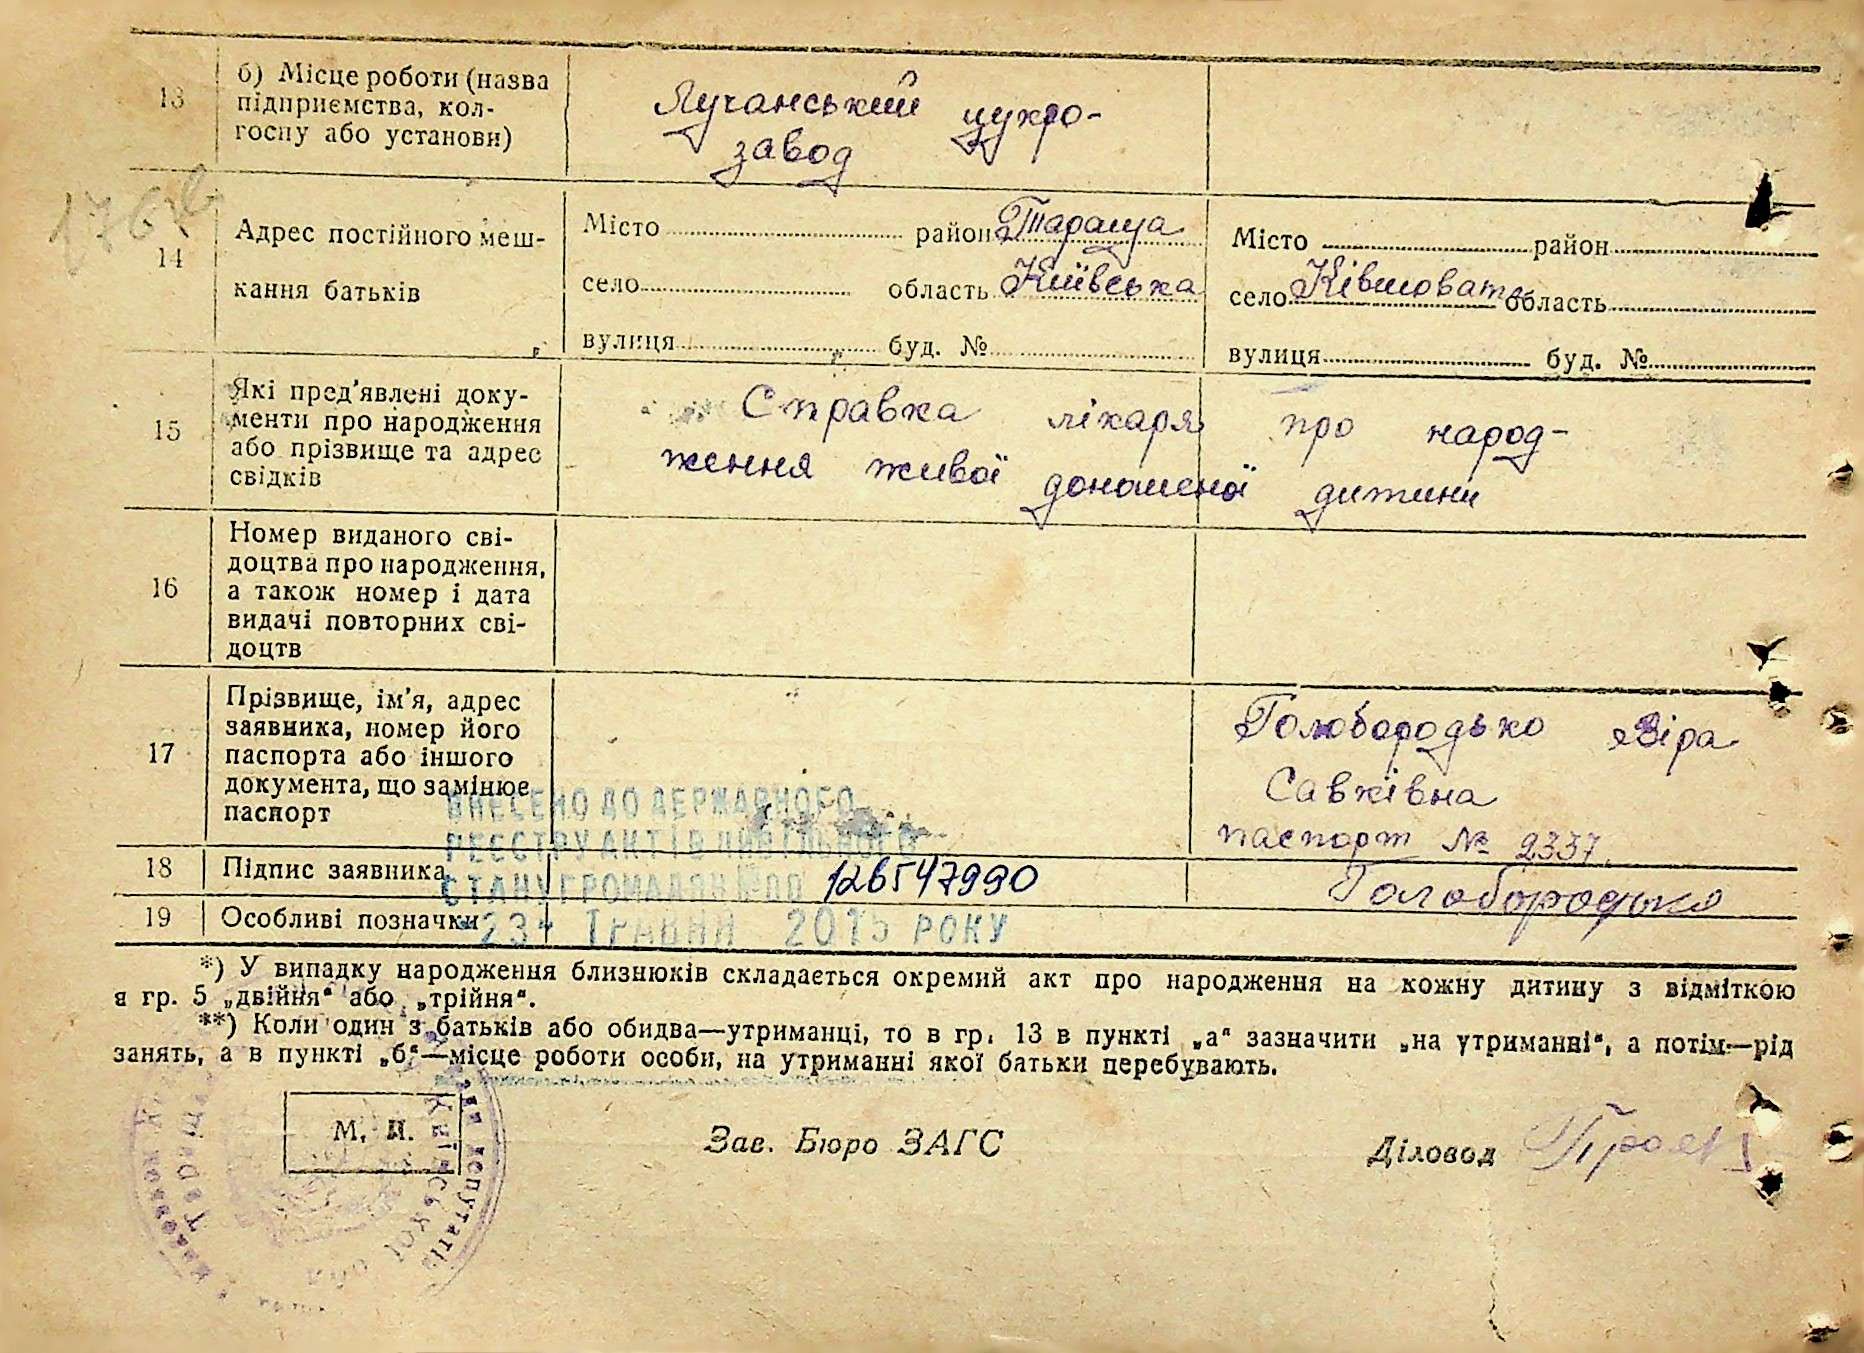 13
б) Місце роботи (назва
підприємства, кол-
госпу або установи)
Лучанський цукро-
завод
14
Адрес постійного меш-
кання батьків
Місто район Тараща
село область Київська
вулиця буд. №
Місто район
село Ківшовата область
вулиця буд. №
15
Які пред'явлені доку-
менти про народження
або прізвище та адрес
свідків
Справка лікаря про народ-
ження живої доношеної дитини
16
Номер виданого сві-
доцтва про народження,
а також номер і дата
видачі повторних сві-
доцтв
17
Прізвище, ім'я, адрес
заявника, номер його
паспорта або іншого
документа, що замінює
паспорт
Голобородько Віра
Савківна
паспорт № 2337
ВНЕСЕНО ДО ДЕРЖАВНОГО
РЕЄСТРУ АКТІВ ЦИВІЛЬНОГО
СТАНУ ГРОМАДЯН ПО 126547990
23 ТРАВНЯ 2015 РОКУ
18 Підпис заявника Голобородько
19 Особливі позначки
*) У випадку народження близнюків складається окремий акт про народження на кожну дитину з відміткою
в гр. 5 „двійня“ або „трійня“.
**) Коли один з батьків або обидва—утриманці, то в гр. 13 в пункті „а“ зазначити „на утриманні“, а потім—рід
занять, а в пункті „б“—місце роботи особи, на утриманні якої батьки перебувають.
М. П.
Зав. Бюро ЗАГС
Діловод
депутатів
Київської